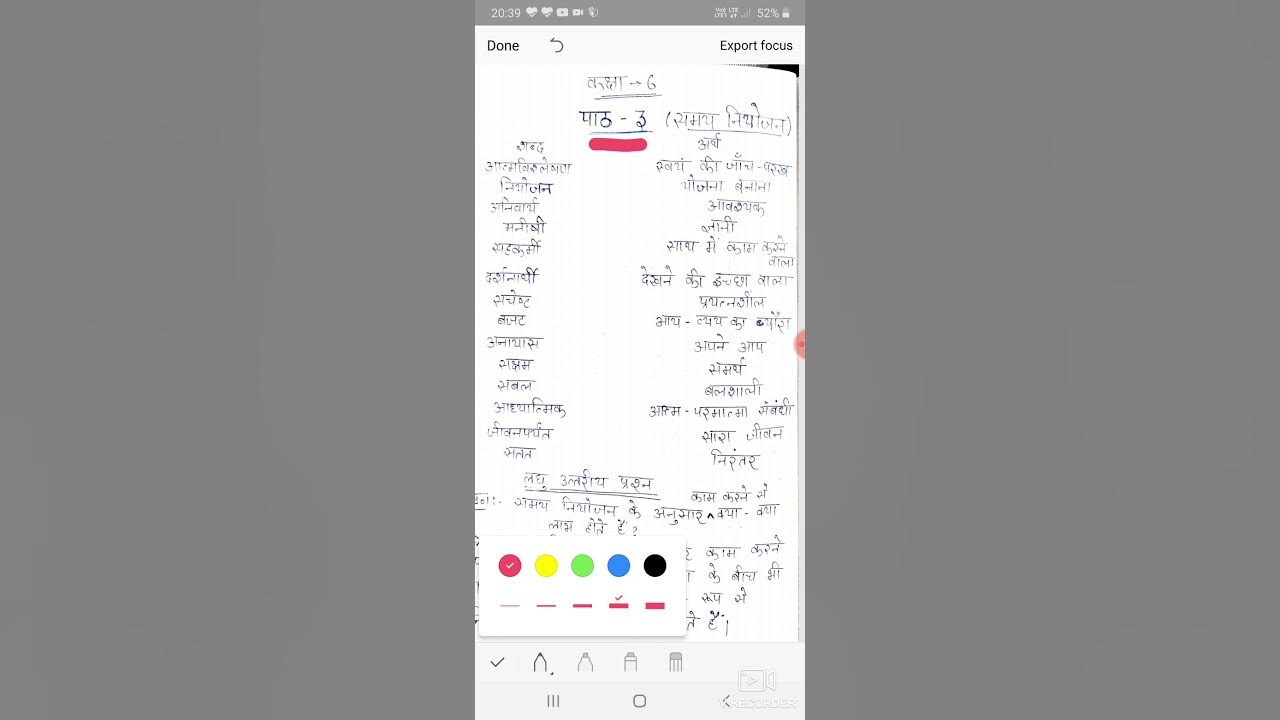 20:39 VoLTE LTE1 52%
Done Export focus
कक्षा → 6
पाठ - ३ (समय नियोजन)
शब्द अर्थ
आत्मविश्लेषण स्वयं की जाँच-परख
नियोजन योजना बनाना
अनिवार्य आवश्यक
मनीषी ज्ञानी
सहकर्मी साथ में काम करने
वाला
दर्शनार्थी देखने की इच्छा वाला
सचेष्ट प्रयत्नशील
बजट आय - व्यय का ब्यौरा
अनायास अपने आप
सक्षम समर्थ
सबल बलशाली
आध्यात्मिक आत्म - परमात्मा संबंधी
जीवनपर्यंत सारा जीवन
सतत निरंतर
लघु उत्तरीय प्रश्न
काम करने से
समय नियोजन के अनुसार ^ क्या - क्या
लाभ होते हैं?
काम करने
के बीच भी
रूप से
ते हैं।
V RECORDER